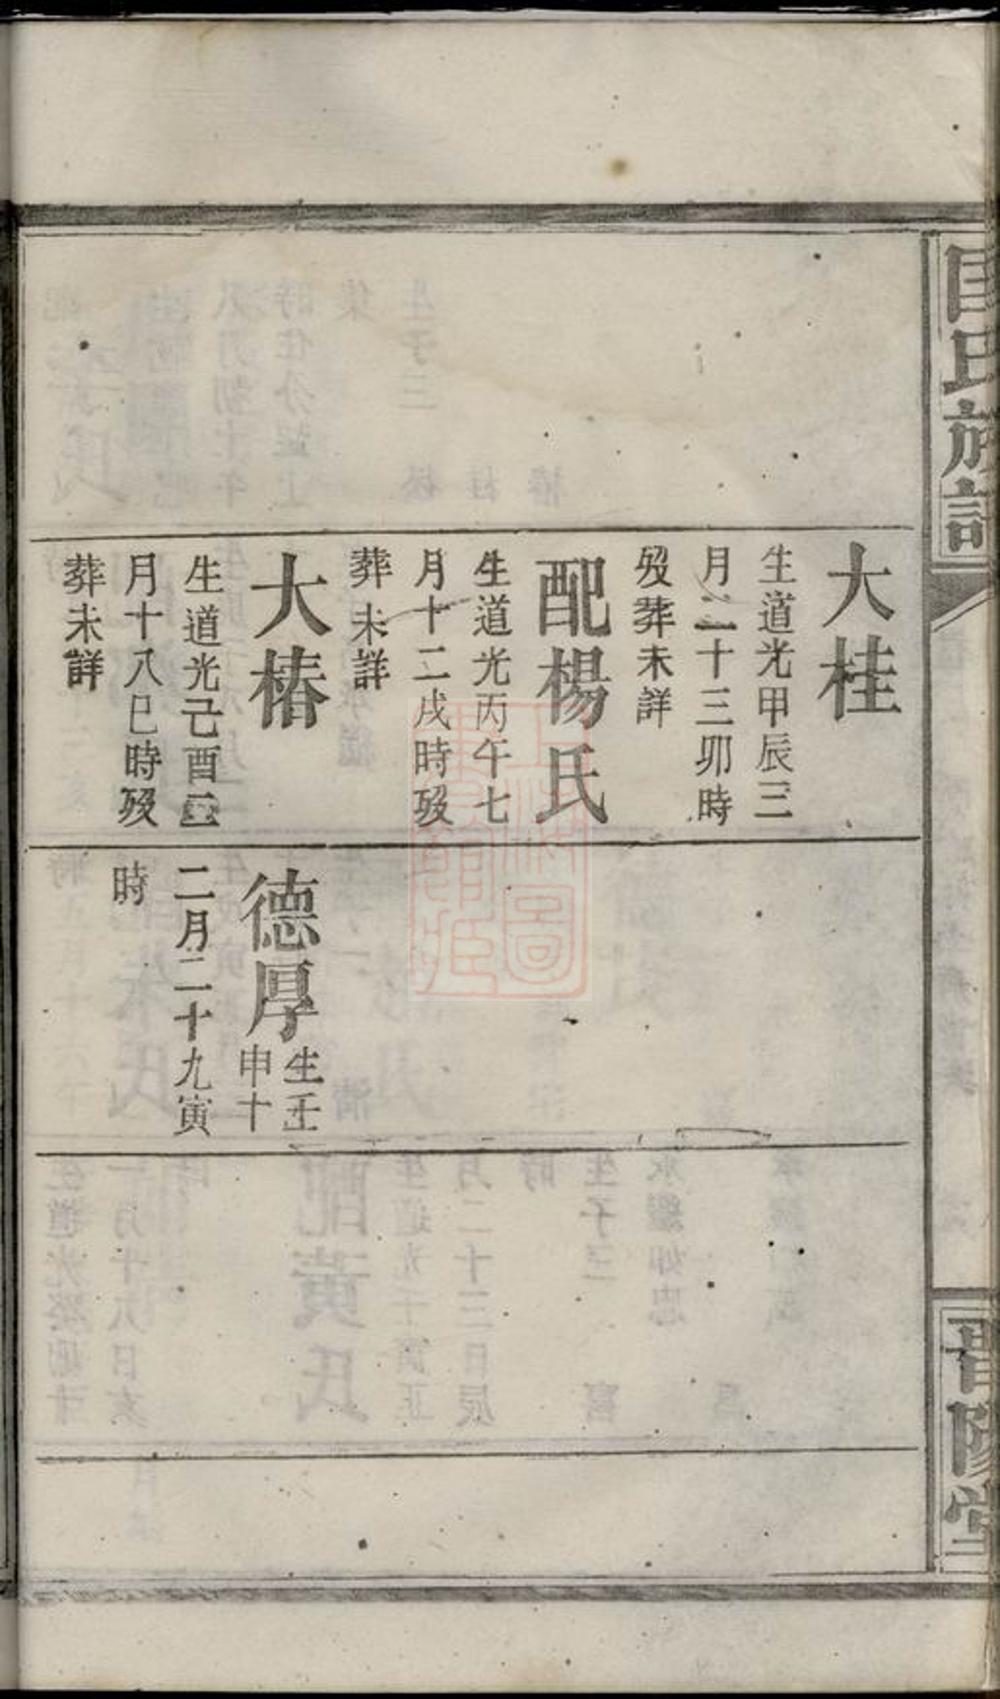 氏族
大桂
生道光甲辰三
月二十三卯時
歿葬未詳
配楊氏
生道光丙午七
月十二戌時歿
葬未詳
大椿
生道光己酉二
月十八巳時歿
葬未詳
德厚
生壬
申十
二月二十九寅
時
晋陽堂